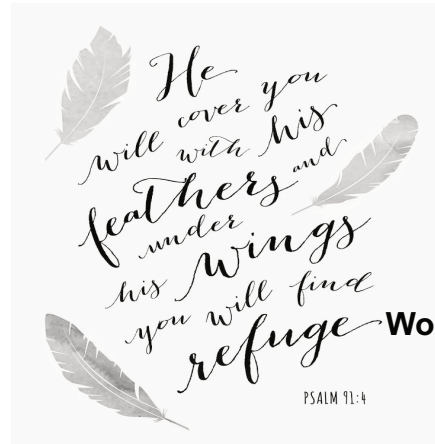 He
will cover you
with his
feathers and
under
his wings
you will find
refuge Wo
PSALM 91:4